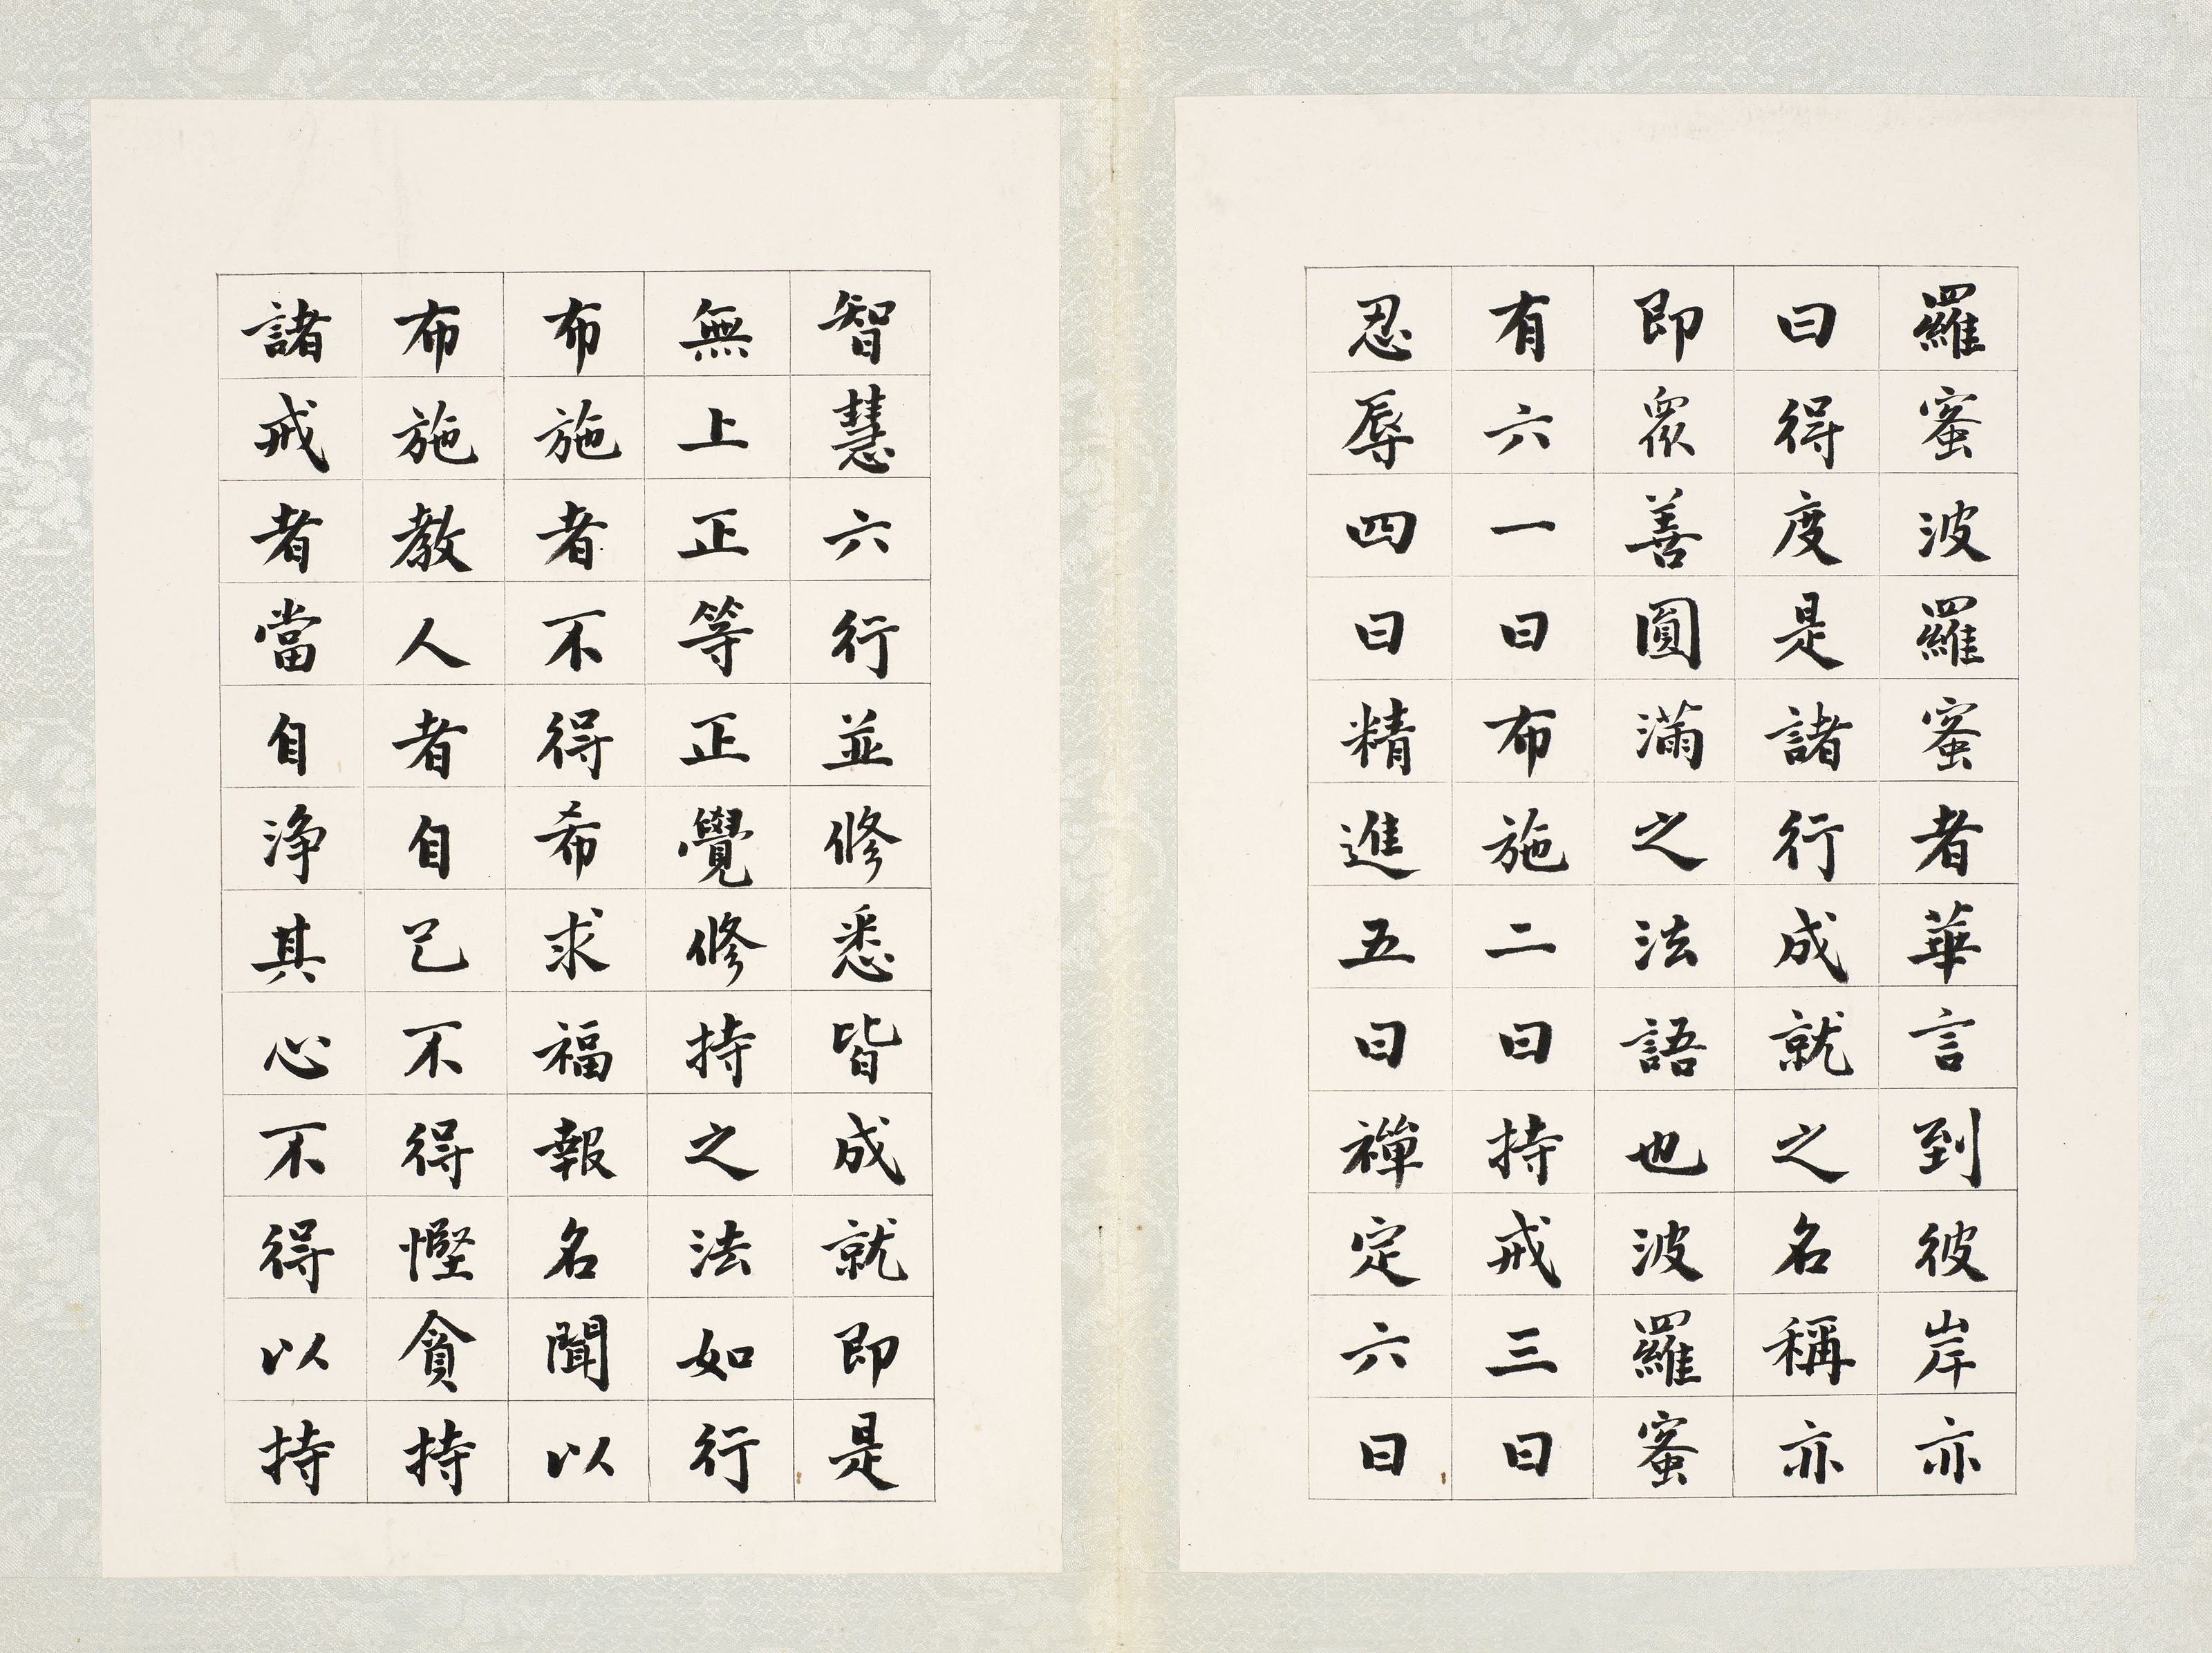 羅蜜波羅蜜者華言到彼岸亦
曰得度是諸行成就之名稱亦
即眾善圓滿之法語也波羅蜜
有六一曰布施二曰持戒三曰
忍辱四曰精進五曰禪定六曰
智慧六行並修悉皆成就即是
無上正等正覺修持之法如行
布施者不得希求福報名聞以
布施教人者自己不得慳貪持
諸戒者當自淨其心不得以持